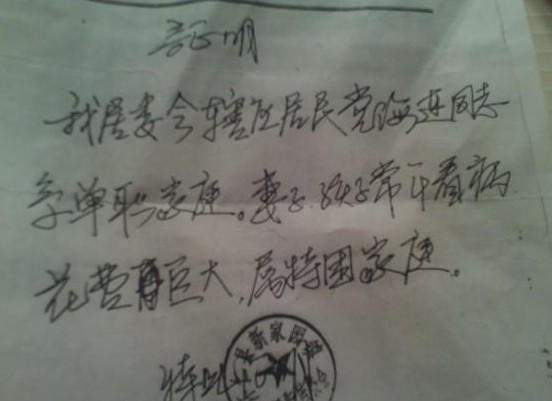 证明
我居委会辖区居民党海连同志
系单职家庭。妻子、孩子常年看病
花费巨大,属特困家庭。
特此
新家园